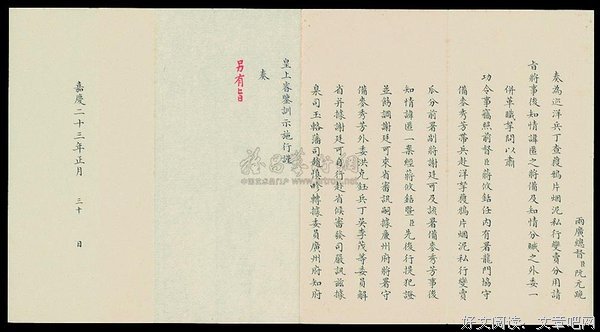 兩廣總督臣阮元跪
奏為巡洋兵丁查獲鴉片烟泥私行變賣分用請
旨將事後知情諱匿之將備及知情分贓之外委一
併革職拏問以肅
功令事竊照前督臣蔣攸銛任內有署龍門協守
備麥秀芳帶兵赴洋拏獲鴉片烟泥私行變賣
瓜分前署副將謝廷可及該署備麥秀芳事後
知情諱匿一案經蔣攸銛暨臣先後行提犯證
並飭調謝廷可來省審訊嗣據廉州府將署守
備麥秀芳外委洪允鈺兵丁吳李茂等委員解
省并據謝廷可自行赴省候審發司嚴訊茲據
臬司玉輅藩司趙慎畛轉據委員廣州府知府
皇上睿鑒訓示施行謹
奏
另有旨
嘉慶二十三年正月 三十 日
好文阅读，文章吧网